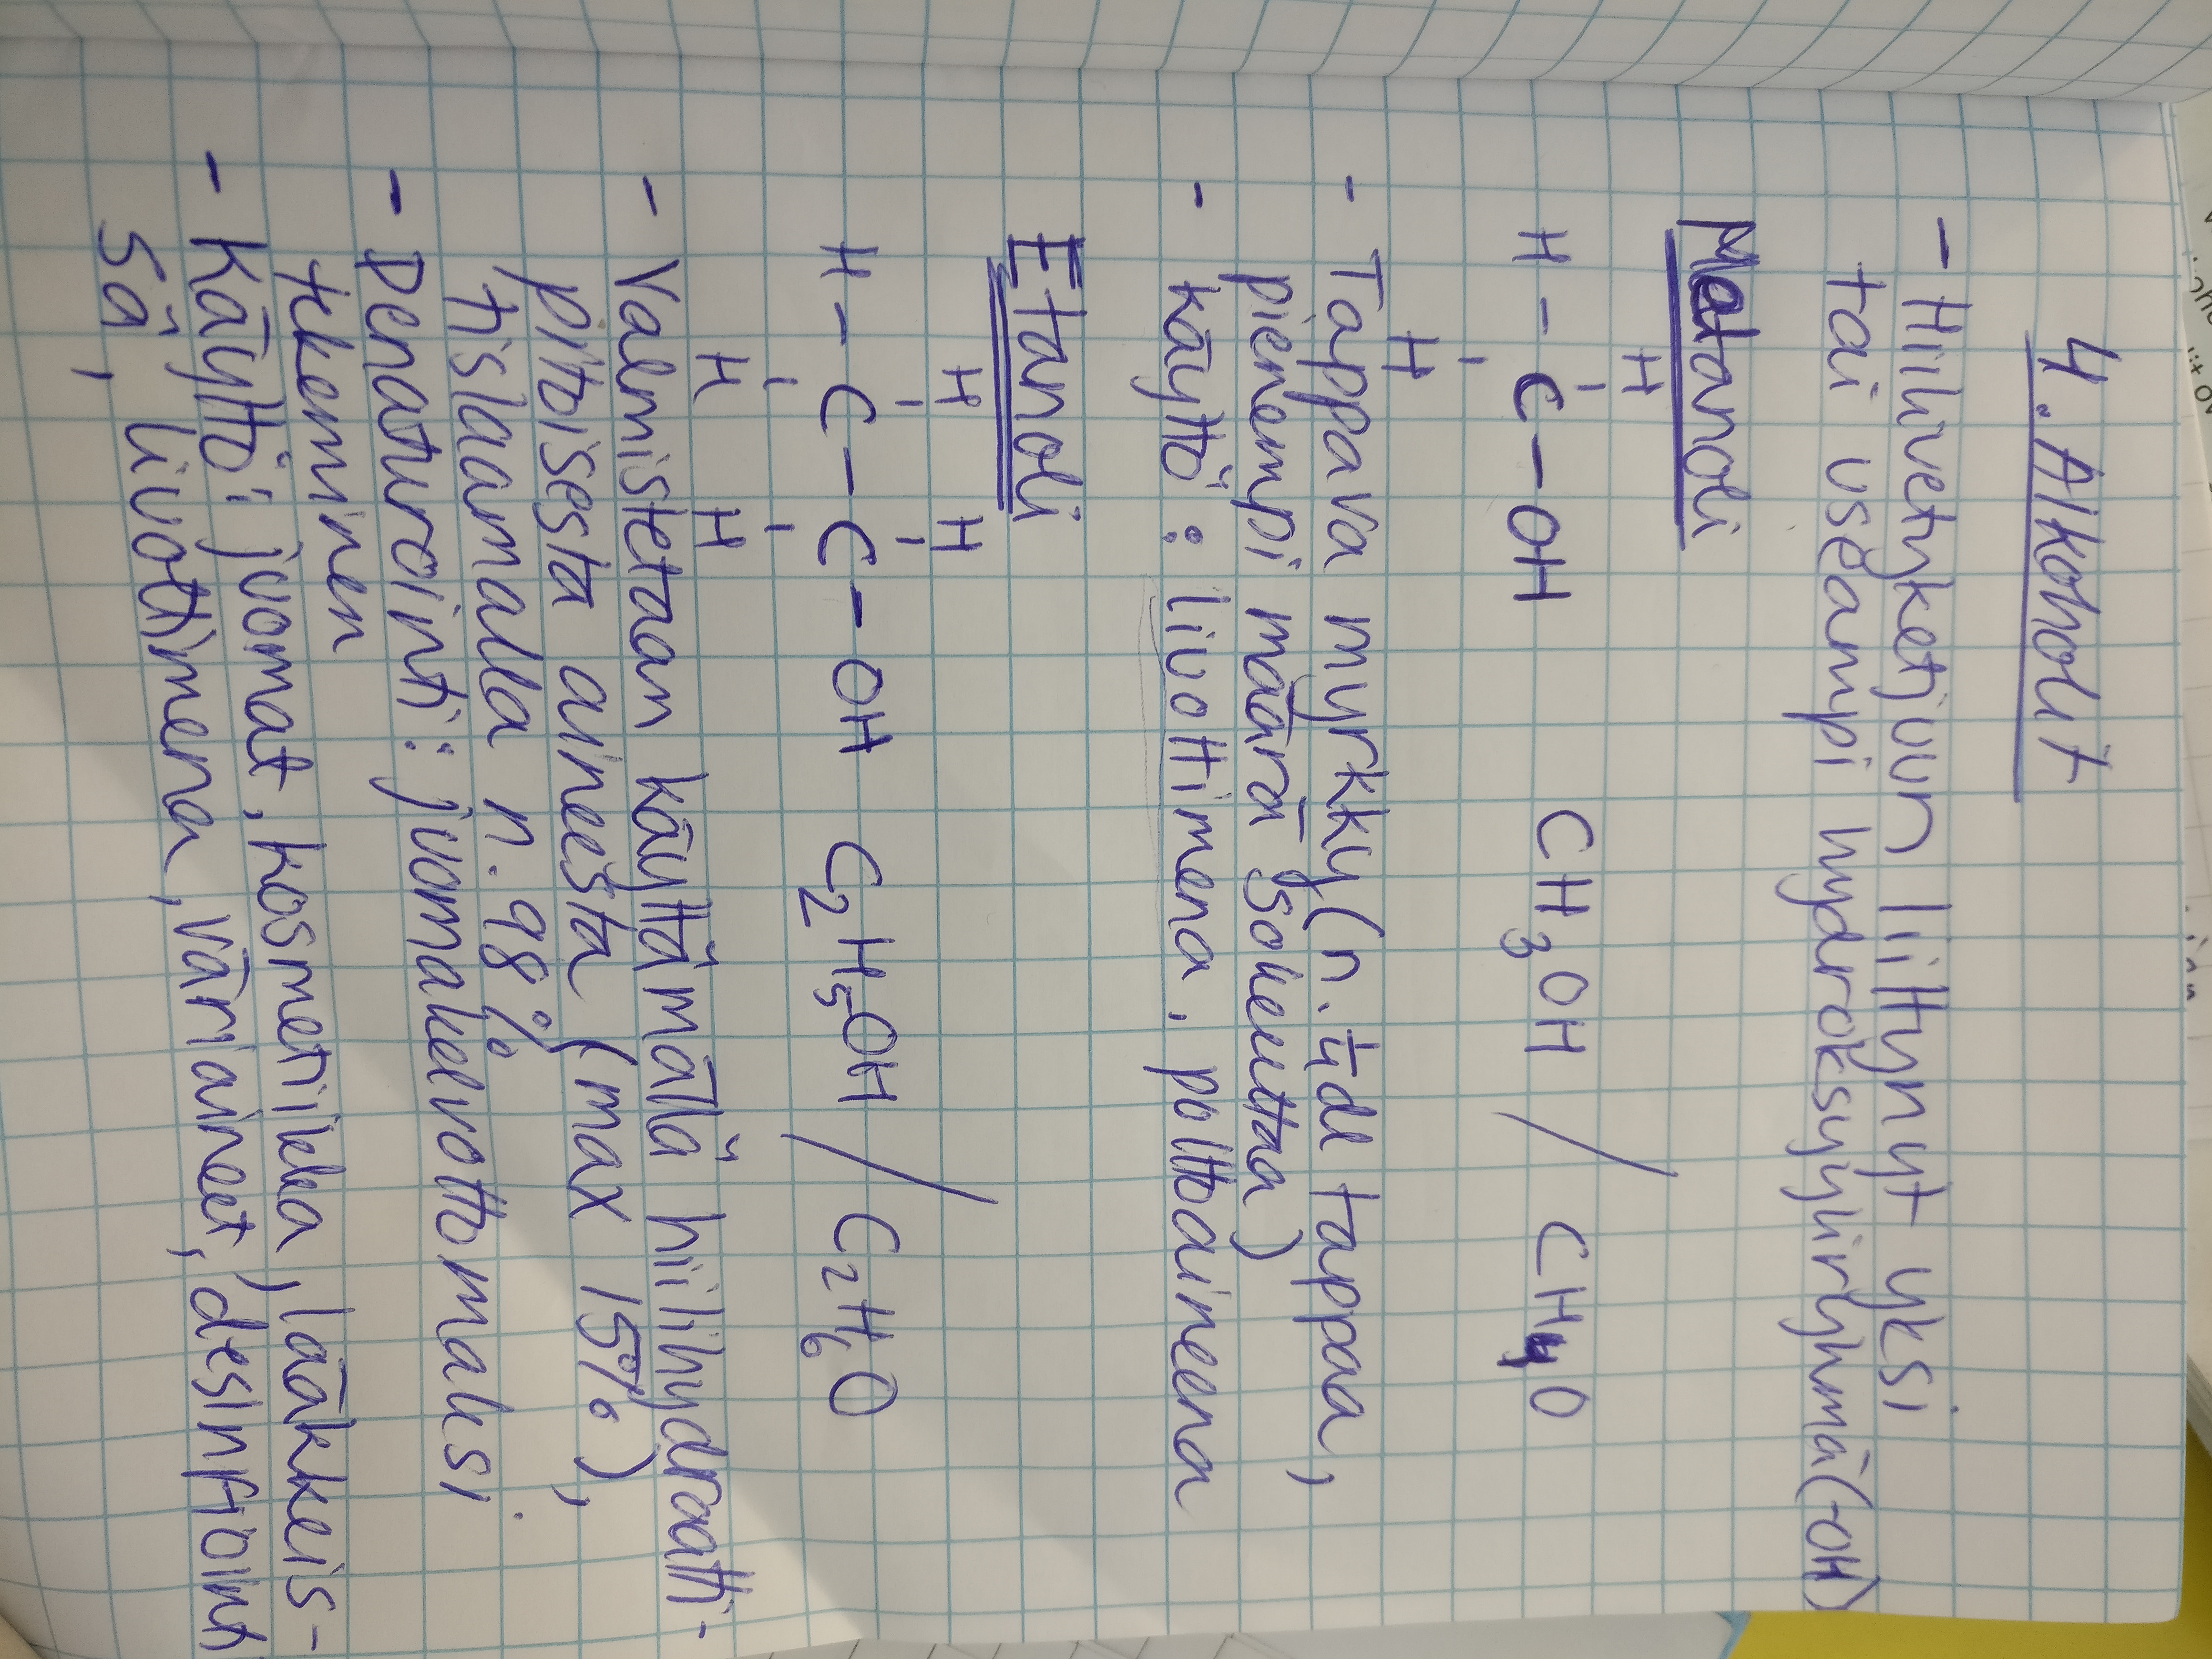 4. Alkoholit
- Hiilivetyketjuun liittynyt yksi
tai useampi hydroksyyliryhmä (-OH)
Metanoli
H
H - C - OH CH3OH / CH4O
H
- Tappava myrkky (n. 1/4 dl tappaa,
pienempi määrä sokeuttaa)
- käyttö: liuottimena, polttoaineena
Etanoli
H H
H - C - C - OH C2H5OH / C2H6O
H H
- Valmistetaan käyttämällä hiilihydraatti-
pitoisesta aineesta (max 15%),
tislaamalla n. 98%
- Denaturointi: juomakelvottomaksi
tekeminen
- Käyttö: juomat, kosmetiikka, lääkkeis-
sä, liuottimena, väriaineet, desinfiointi